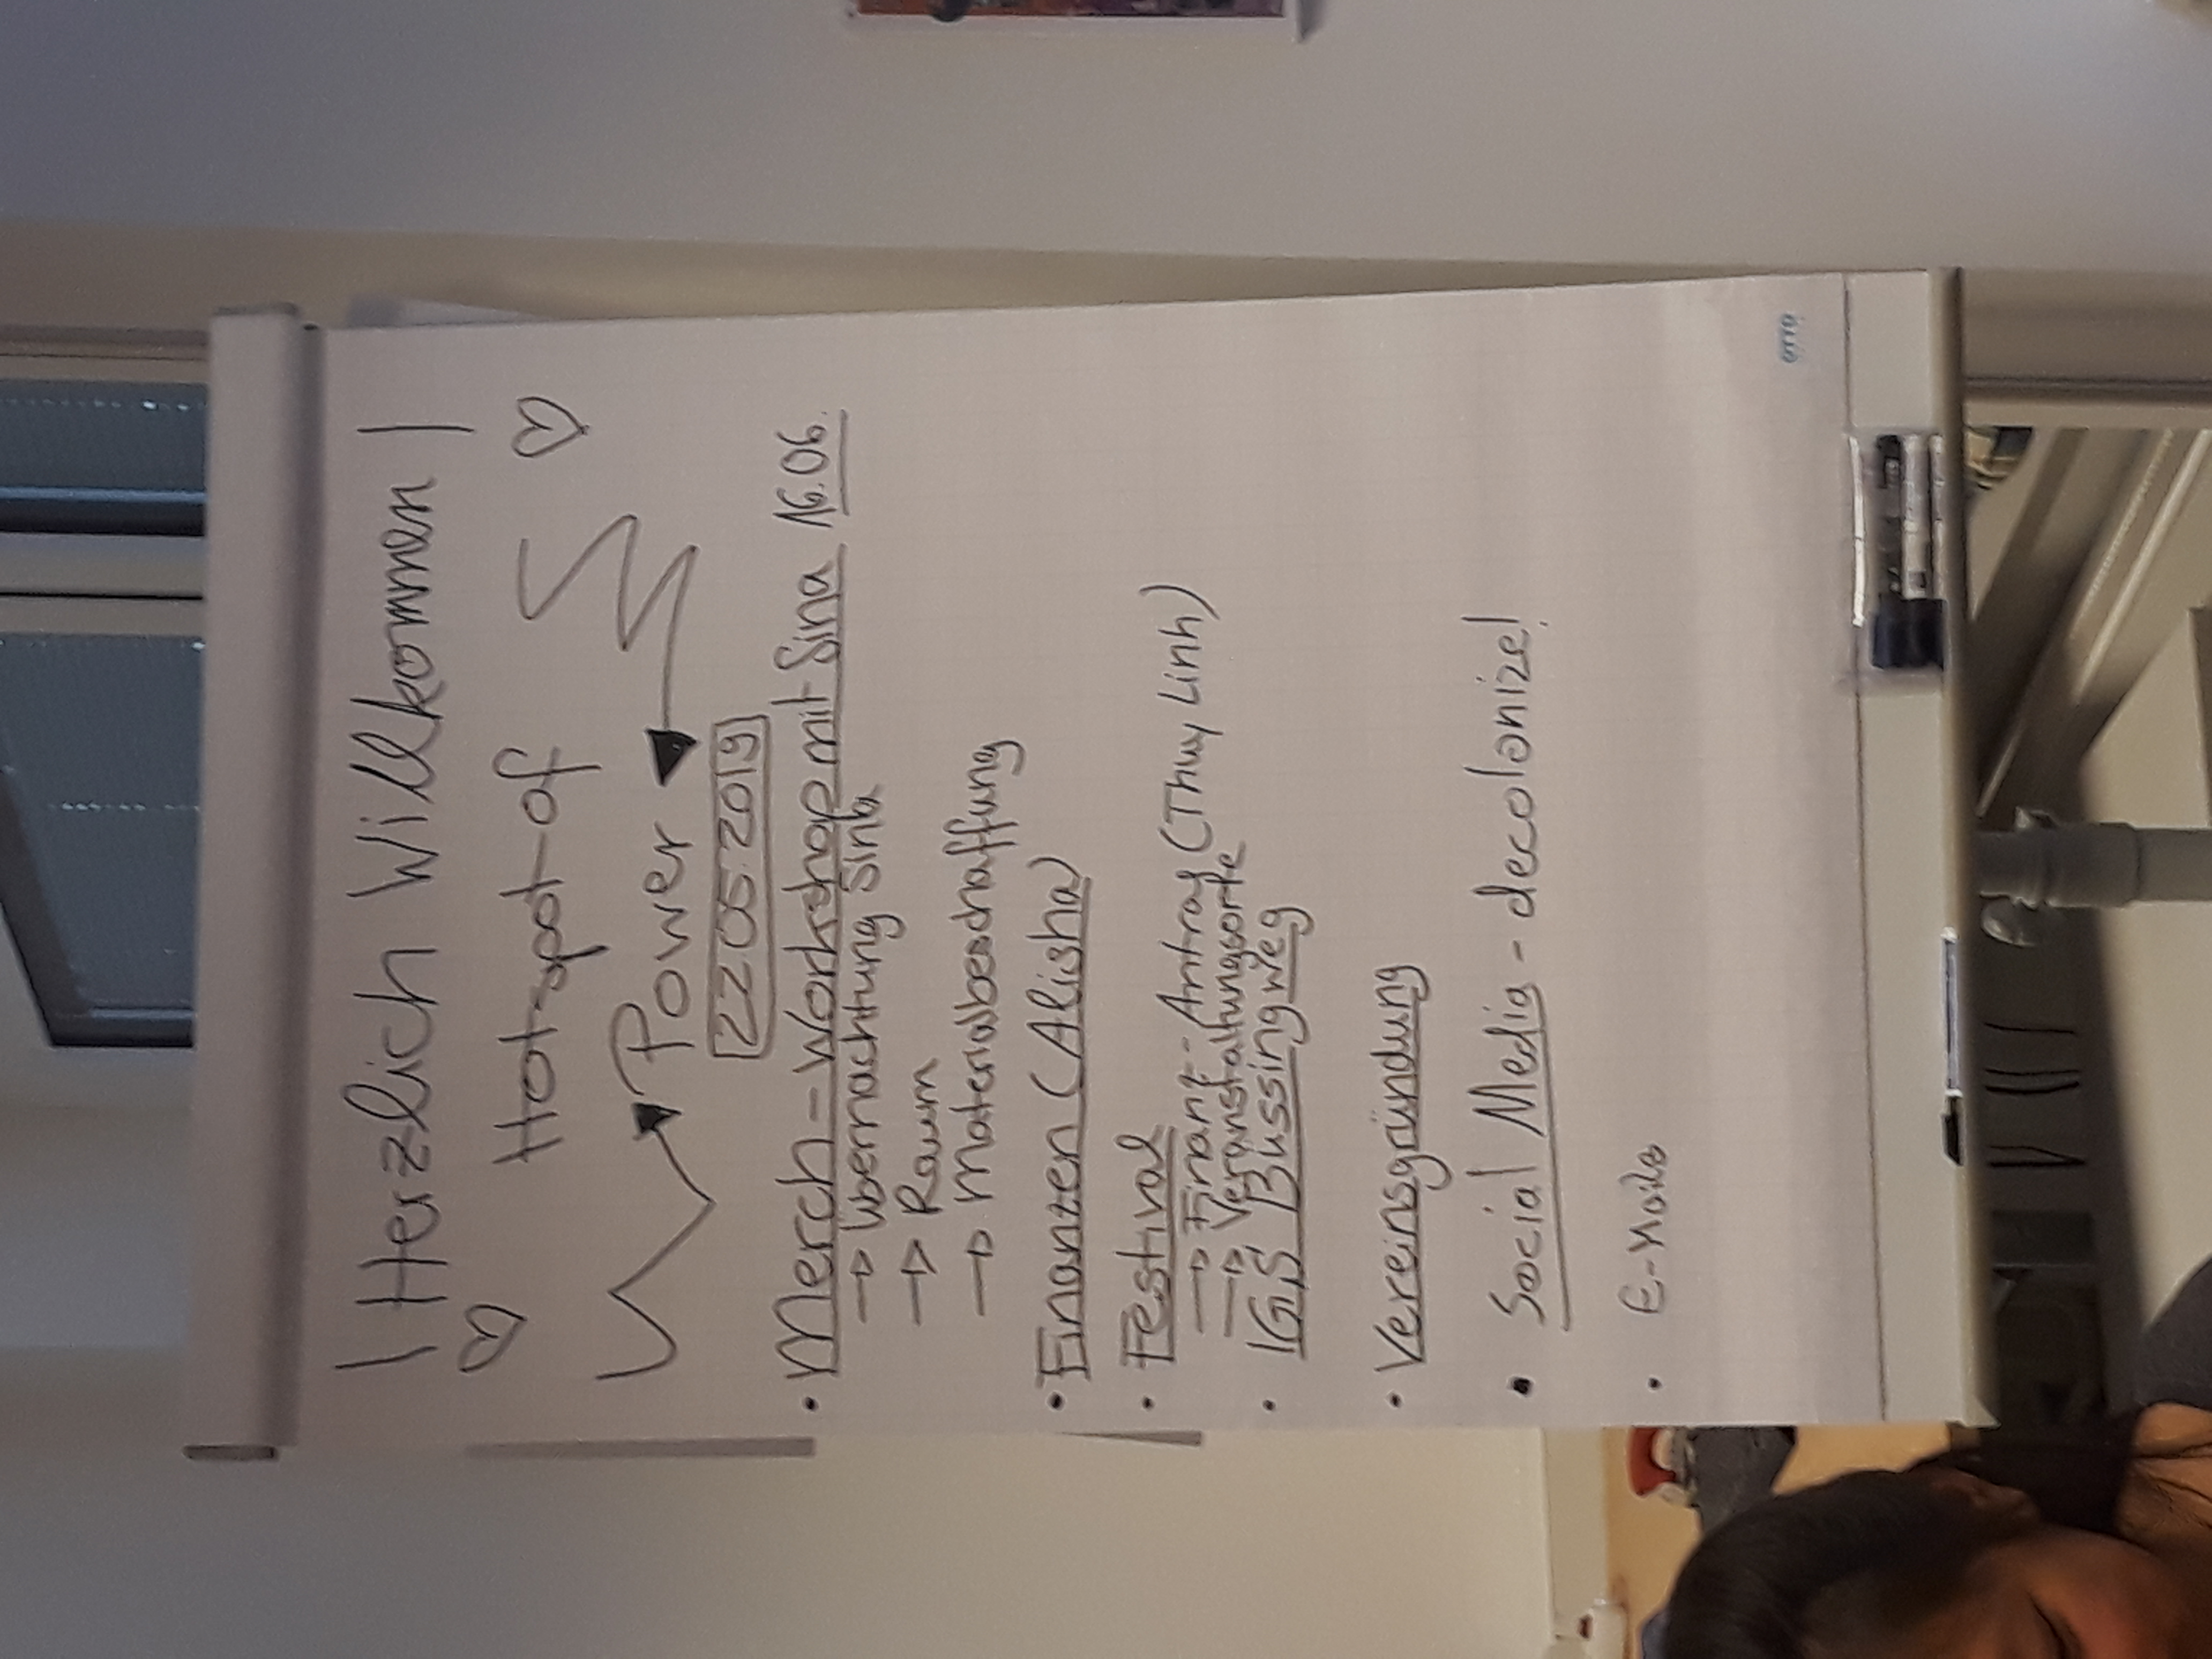 Herzlich Willkommen
Hot-spot-of
Power
22.05.2019
• Merch-Workshop mit Sina 16.06.
→ Übernachtung Sina
→ Raum
→ Materialbeschaffung
• Finanzen (Alisha)
• Festival
→ Finanz-Antrag (Thuy Linh)
→ Veranstaltungsorte
• IGS Büssingweg
• Vereinsgründung
• Social Media - decolonize!
• E-Mails